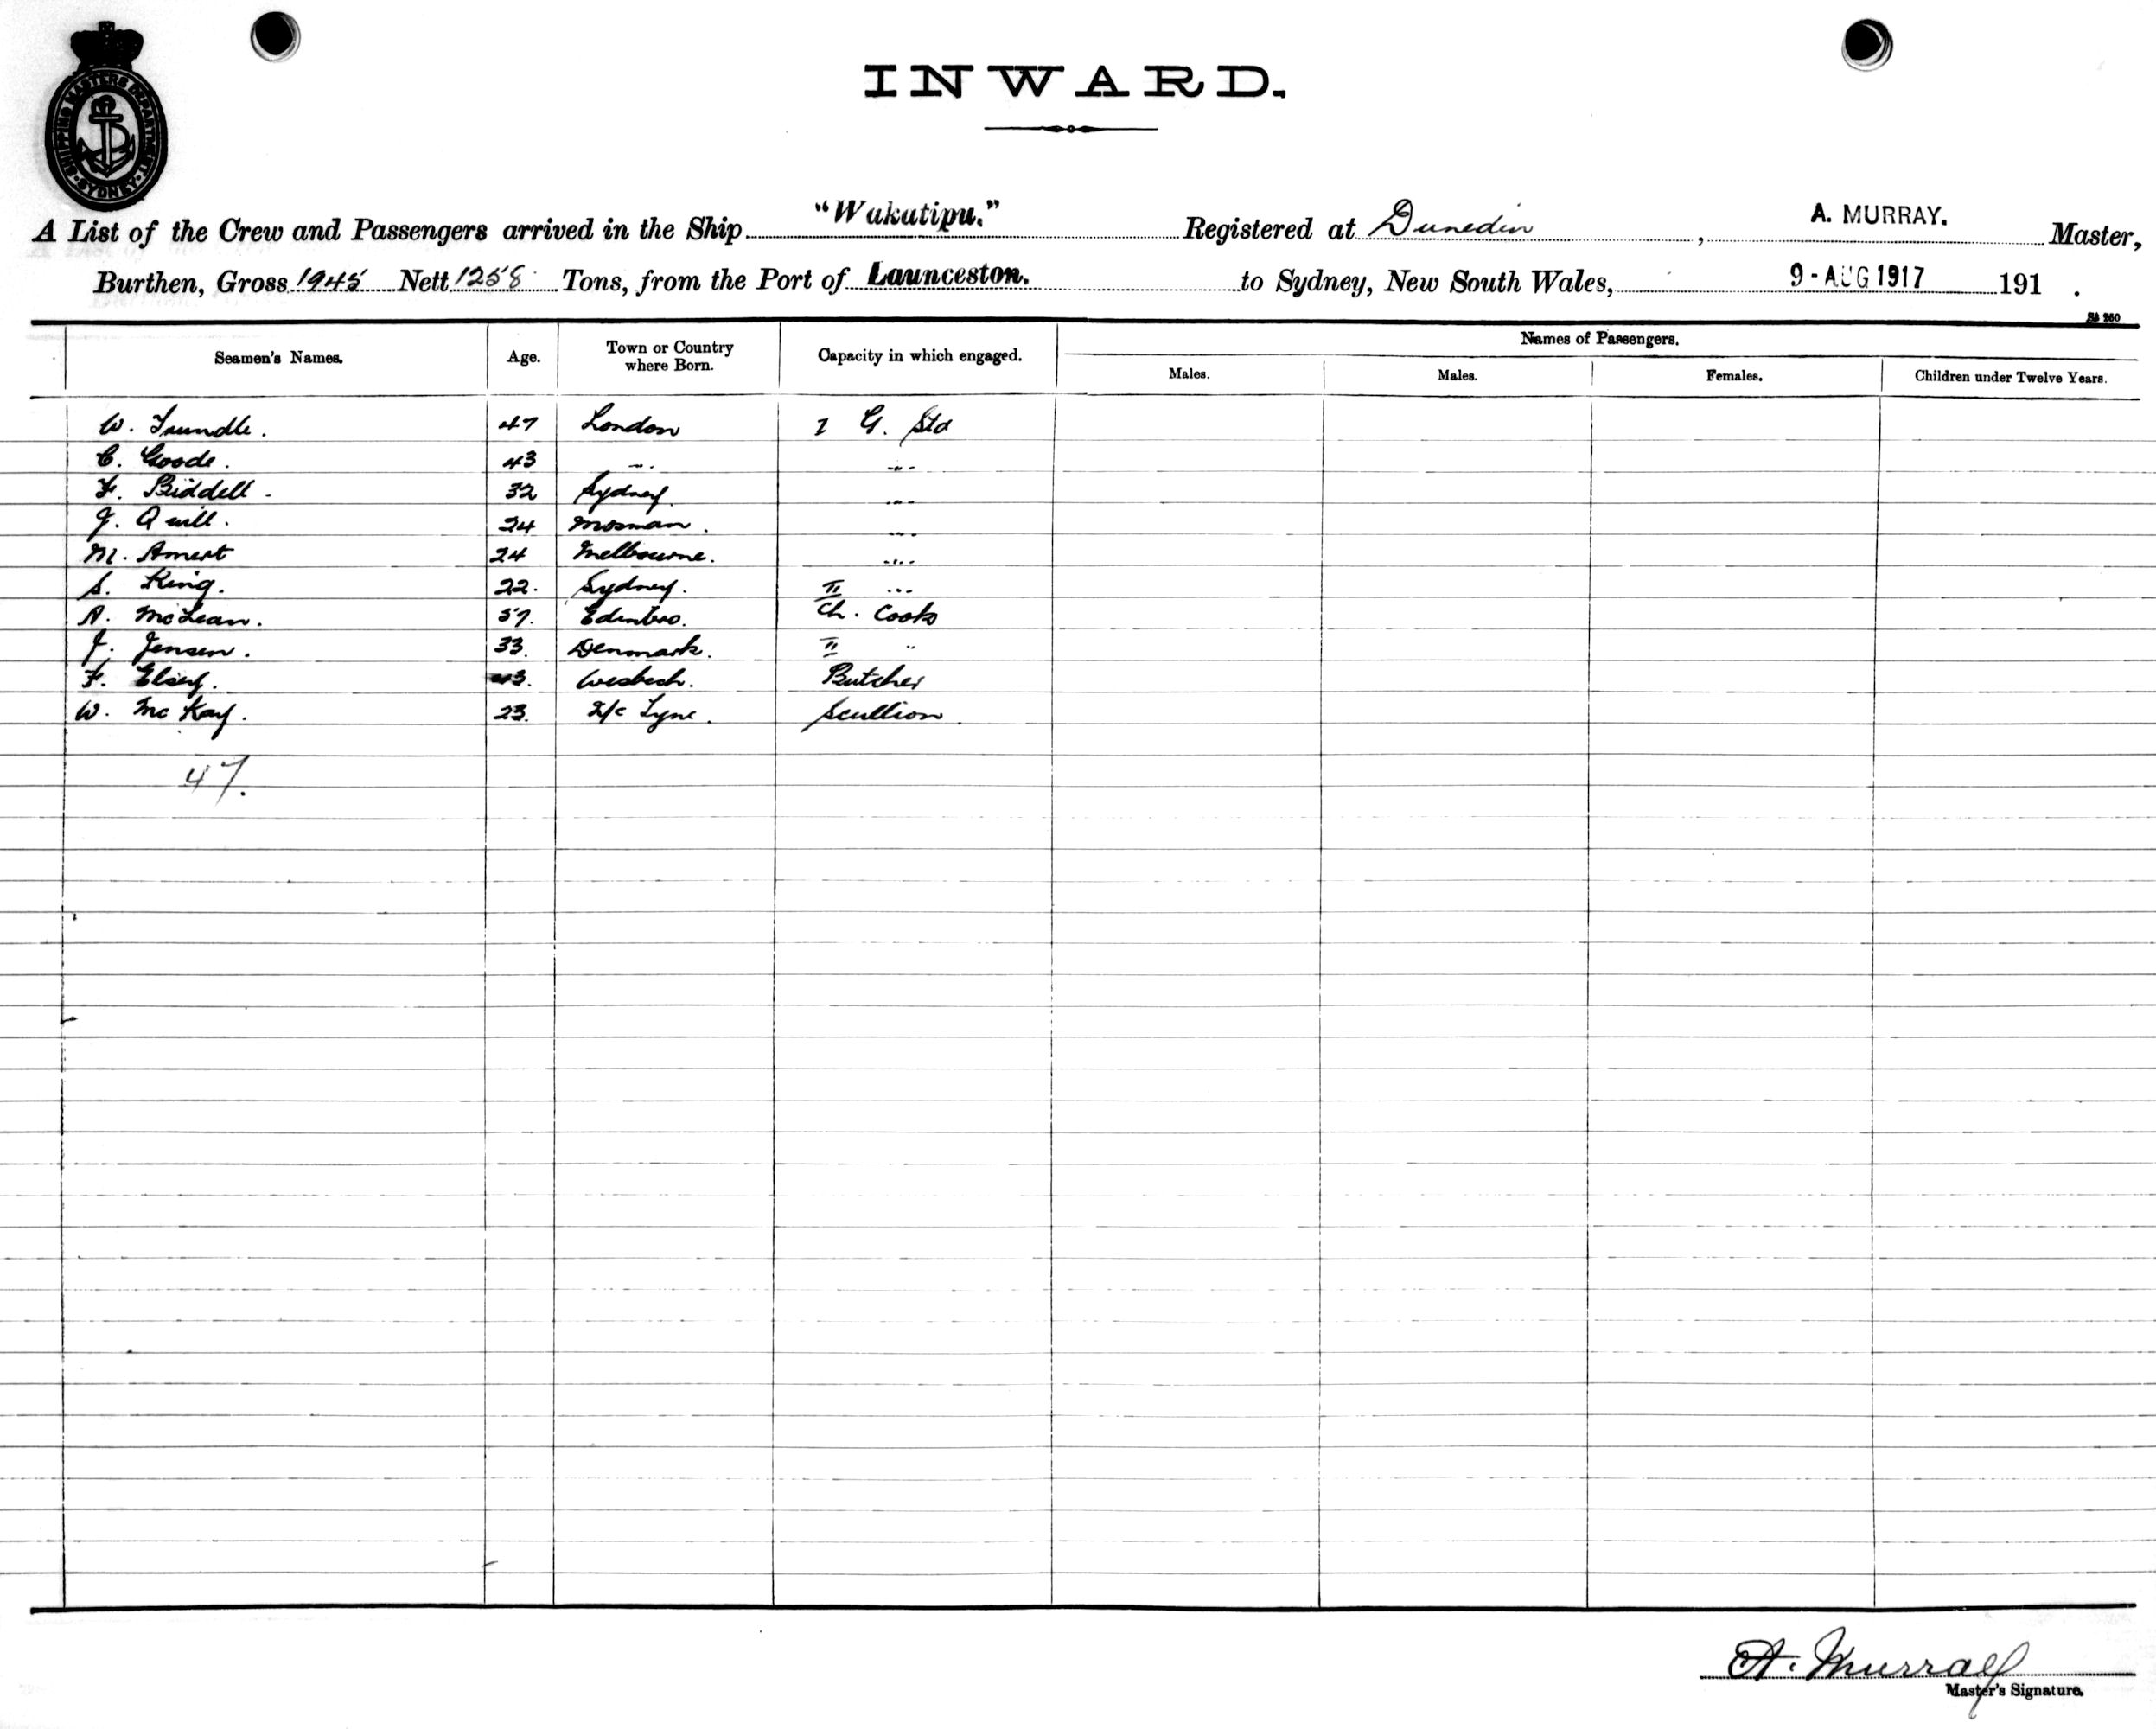 SHIPPING MASTERS DEPARTMENT
SYDNEY
INWARD.
A List of the Crew and Passengers arrived in the Ship "Wakatipu." Registered at Dunedin, A. MURRAY. Master,
Burthen, Gross 1945 Nett 1258 Tons, from the Port of Launceston. to Sydney, New South Wales, 9-AUG 1917 191 .
Seamen's Names. Age. Town or Country where Born. Capacity in which engaged. Names of Passengers.
Males. Males. Females. Children under Twelve Years.
W. Trundle. 47 London G. Std
C. Goode. 43 " "
F. Biddell 32 Sydney. "
J. Quill. 24 Mosman. "
M. 24 Melbourne. "
S. King. 22. Sydney. II "
A. McLean. 57. Edinbro. Ch. Cook
J. Jensen. 33. Denmark. II "
F. 43. Wesbech. Butcher
W. McKay. 23. N/c Tyne. Scullion.
47.
A. Murray
Master's Signature.